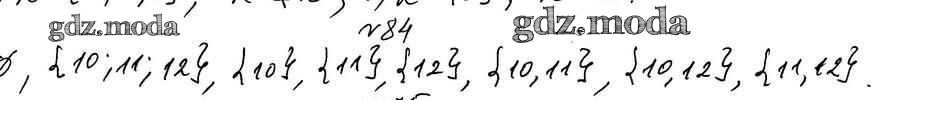 gdz.moda
№84
gdz.moda
∅, {10; 11; 12}, {10}, {11}, {12}, {10, 11}, {10, 12}, {11, 12}.